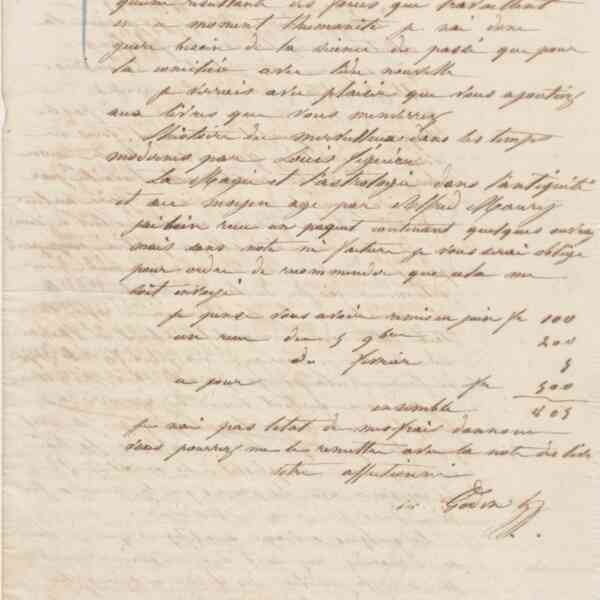 qu'une resultante des forces que travaillent
en ce moment l'humanité je n'ai donc
guere besoin de la science du passé que pour
la avec l'ère nouvelle
je verrais avec plaisir que vous ajoutiez
aux livres que vous
l'histoire du merveilleux dans les temps
modernes par Louis Figuier
La Magie et l'astrologie dans l'antiquité
et au moyen age par Alfred Maury
j'ai bien recu un paquet contenant quelques
mais sans note ni facture je vous serai obligé
pour ordre de que cela me
soit envoyé
je pense vous avoir remis en juin fr 100
un recu du 5 9bre 200
du fevrier 5
a pour fr 100
ensemble 405
je n'ai pas l'etat de mes frais
vous pourrez me le remettre avec la note
votre affectionné
Godin